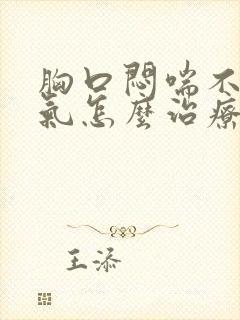 胸口悶喘不
氣怎麼治療
王添